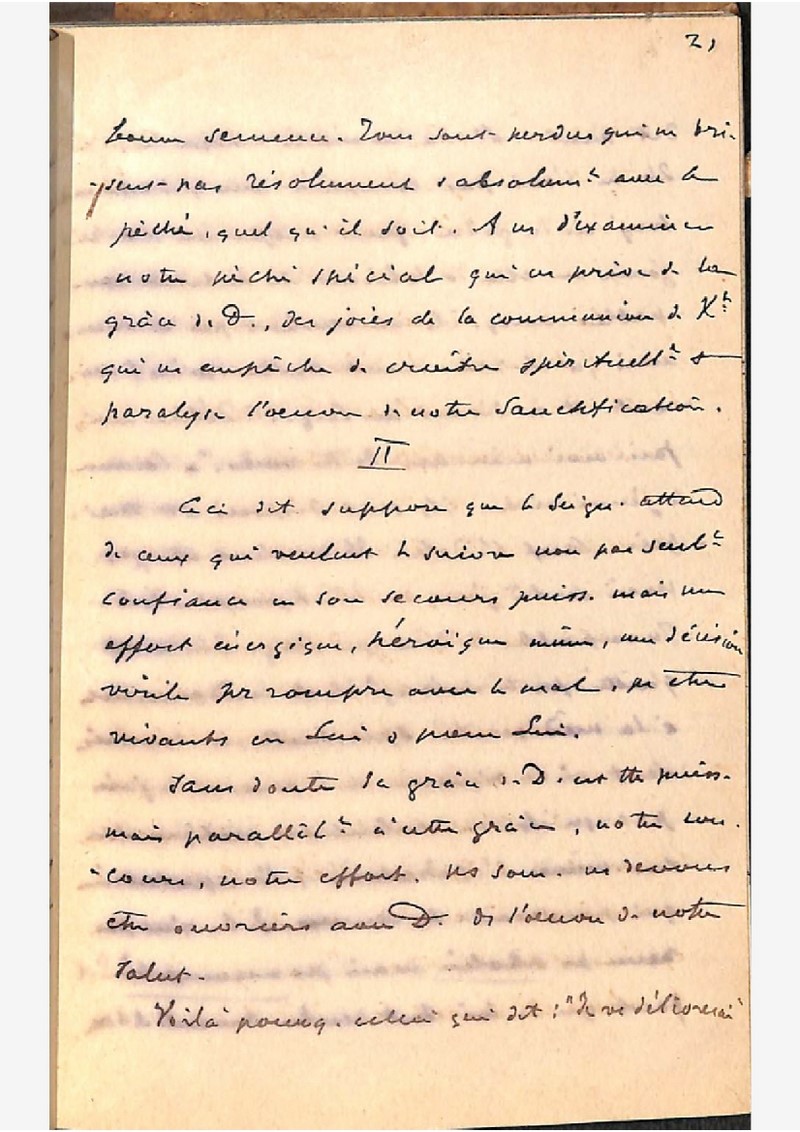 21
bonne semence. Tous sont perdus qui ne bri-
sent pas résolument & absolumt avec le
péché, quel qu'il soit. A ns d'examiner
notre péché spécial qui ns prive de la
grâce de D., des joies de la communion de Xt
qui ns empêche de croître spirituellt &
paralyse l'oeuvre de notre Sanctification.
II
Ceci dit suppose que le Seign. attend
de ceux qui veulent le suivre non pas seult
confiance en son secours puiss. mais un
effort énergique, héroïque même, une décision
virile pr rompre avec le mal, pr être
vivants en Lui & pour Lui.
Sans doute la grâce de D. est tte puiss.
mais parallèlt à cette grâce, notre con-
cours, notre effort. Ns som. ns devons
être ouvriers avec D. ds l'oeuvre de notre
Salut.
Voilà pourq. celui qui dit : "Je vs délivrerai"